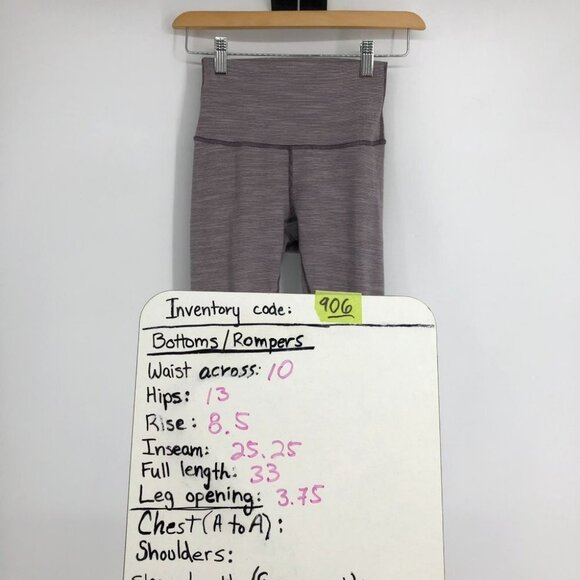 Inventory code: 906
Bottoms/Rompers
Waist across: 10
Hips: 13
Rise: 8.5
Inseam: 25.25
Full length: 33
Leg opening: 3.75
Chest (A to A):
Shoulders: